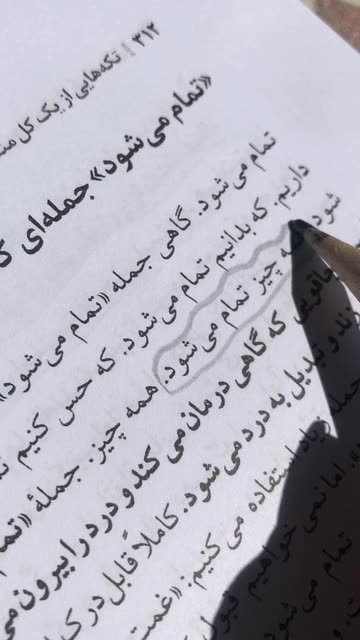 ۳۱۲ | تکه‌هایی از یک کل
«تمام می‌شود» جمله‌ای
تمام می‌شود. گاهی جمله «تمام می‌شود»
داریم. که بدانیم تمام می‌شود. که حس کنیم
شود چیز تمام می‌شود. همه چیز. جملهٔ
چاقویی که گاهی درمان می‌کند و درد را بیرون
و تبدیل به درد می‌شود. کاملاً قابل درک
جمله زیاد استفاده می‌کنیم:
اما نمی‌خواهیم قبول
تمام می